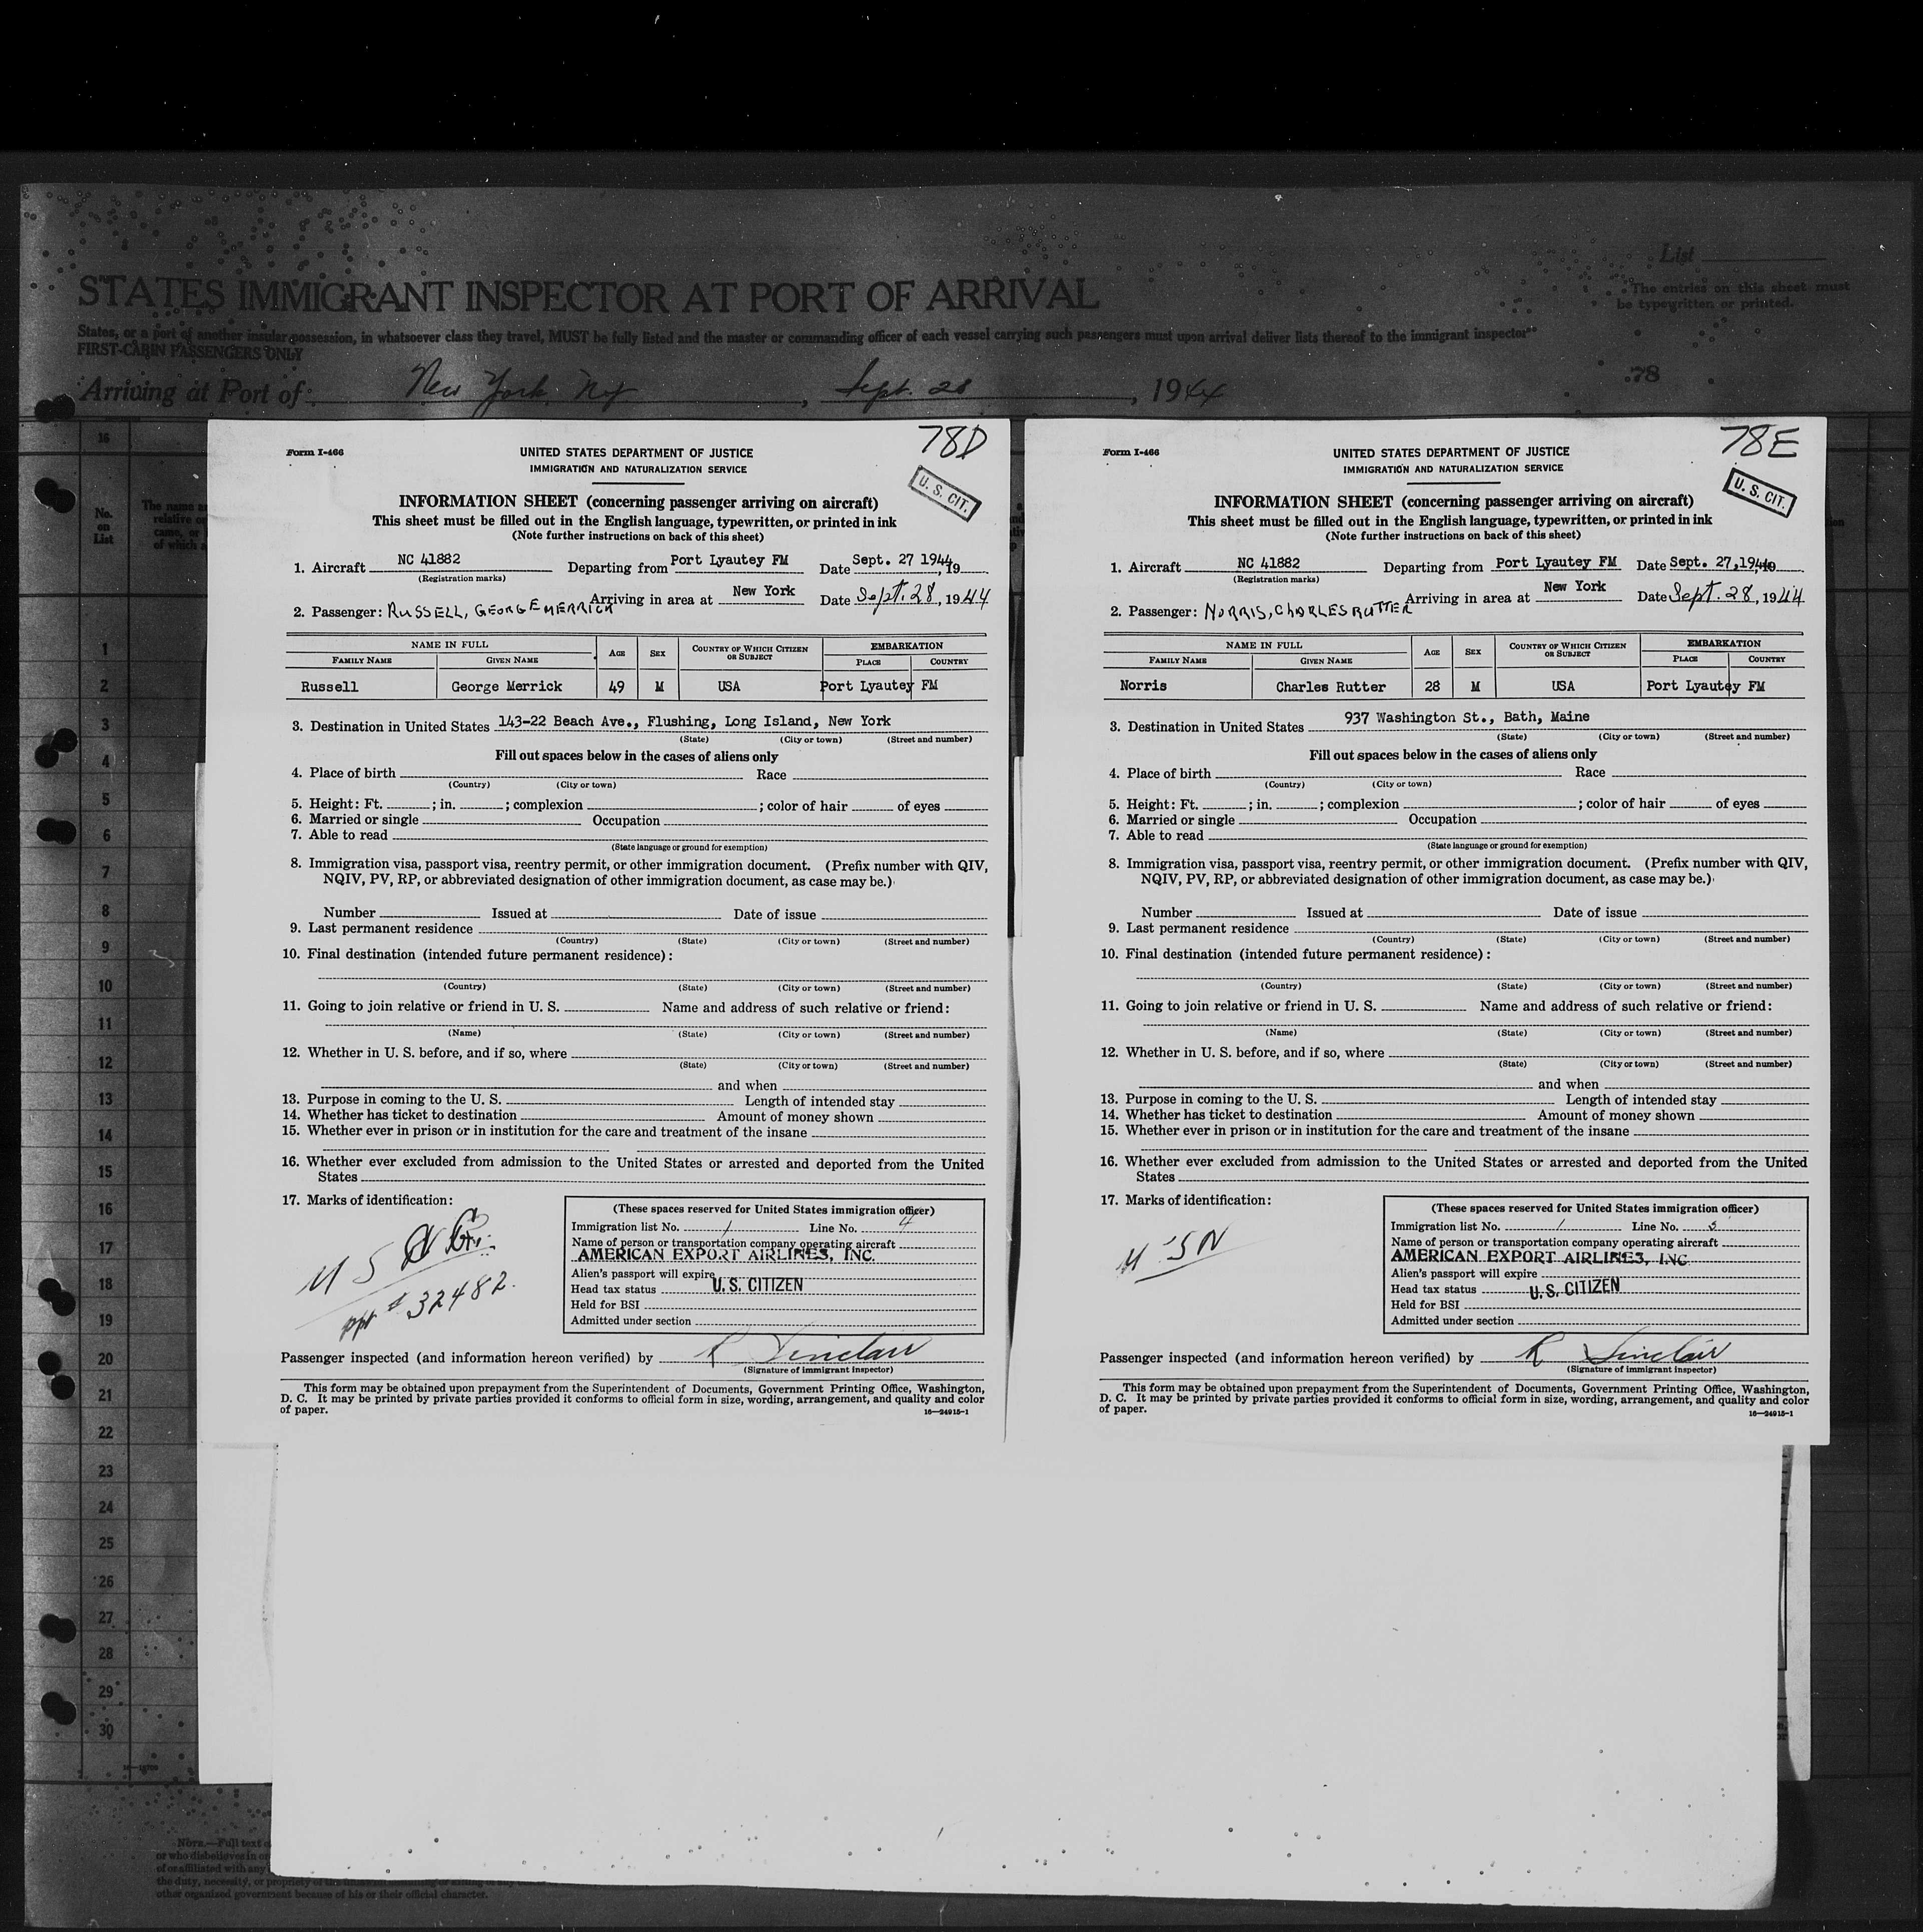 List
STATES IMMIGRANT INSPECTOR AT PORT OF ARRIVAL
The entries on this sheet must
be typewritten or printed.
States, or a port of another insular possession, in whatsoever class they travel, MUST be fully listed and the master or commanding officer of each vessel carrying such passengers must upon arrival deliver lists thereof to the immigrant inspector
FIRST-CABIN PASSENGERS ONLY
78
Arriving at Port of: New York, NY, Sept. 28, 1944
16
No.
on
List
The name a
relative o
came, or
of which a
1
2
3
4
5
6
7
8
9
10
11
12
13
14
15
16
17
18
19
20
21
22
23
24
25
26
27
28
29
30
78D
Form I-466
UNITED STATES DEPARTMENT OF JUSTICE
IMMIGRATION AND NATURALIZATION SERVICE
U. S. CIT.
INFORMATION SHEET (concerning passenger arriving on aircraft)
This sheet must be filled out in the English language, typewritten, or printed in ink
(Note further instructions on back of this sheet)
1. Aircraft NC 41882 Departing from Port Lyautey FM Date Sept. 27 1944, 19
(Registration marks)
Arriving in area at New York Date Sept. 28, 1944
2. Passenger: RUSSELL, GEORGE MERRICK
NAME IN FULL AGE SEX COUNTRY OF WHICH CITIZEN OR SUBJECT EMBARKATION
FAMILY NAME GIVEN NAME PLACE COUNTRY
Russell George Merrick 49 M USA Port Lyautey FM
3. Destination in United States 143-22 Beach Ave., Flushing, Long Island, New York
(State) (City or town) (Street and number)
Fill out spaces below in the cases of aliens only
4. Place of birth Race
(Country) (City or town)
5. Height: Ft. ; in. ; complexion ; color of hair of eyes
6. Married or single Occupation
7. Able to read
(State language or ground for exemption)
8. Immigration visa, passport visa, reentry permit, or other immigration document. (Prefix number with QIV,
NQIV, PV, RP, or abbreviated designation of other immigration document, as case may be.)
Number Issued at Date of issue
9. Last permanent residence
(Country) (State) (City or town) (Street and number)
10. Final destination (intended future permanent residence):
(Country) (State) (City or town) (Street and number)
11. Going to join relative or friend in U. S. Name and address of such relative or friend:
(Name) (State) (City or town) (Street and number)
12. Whether in U. S. before, and if so, where
(State) (City or town) (Street and number)
and when
13. Purpose in coming to the U. S. Length of intended stay
14. Whether has ticket to destination Amount of money shown
15. Whether ever in prison or in institution for the care and treatment of the insane
16. Whether ever excluded from admission to the United States or arrested and deported from the United
States
17. Marks of identification:
U S
ppt # 32482.
(These spaces reserved for United States immigration officer)
Immigration list No. 1 Line No. 4
Name of person or transportation company operating aircraft
AMERICAN EXPORT AIRLINES, INC.
Alien's passport will expire
Head tax status U.S. CITIZEN
Held for BSI
Admitted under section
Passenger inspected (and information hereon verified) by R Sinclair
(Signature of immigrant inspector)
This form may be obtained upon prepayment from the Superintendent of Documents, Government Printing Office, Washington,
D. C. It may be printed by private parties provided it conforms to official form in size, wording, arrangement, and quality and color
of paper.
16—24915-1
78E
Form I-466
UNITED STATES DEPARTMENT OF JUSTICE
IMMIGRATION AND NATURALIZATION SERVICE
U. S. CIT.
INFORMATION SHEET (concerning passenger arriving on aircraft)
This sheet must be filled out in the English language, typewritten, or printed in ink
(Note further instructions on back of this sheet)
1. Aircraft NC 41882 Departing from Port Lyautey FM Date Sept. 27, 1944
(Registration marks)
Arriving in area at New York Date Sept. 28, 1944
2. Passenger: NORRIS, CHARLES RUTTER
NAME IN FULL AGE SEX COUNTRY OF WHICH CITIZEN OR SUBJECT EMBARKATION
FAMILY NAME GIVEN NAME PLACE COUNTRY
Norris Charles Rutter 28 M USA Port Lyautey FM
3. Destination in United States 937 Washington St., Bath, Maine
(State) (City or town) (Street and number)
Fill out spaces below in the cases of aliens only
4. Place of birth Race
(Country) (City or town)
5. Height: Ft. ; in. ; complexion ; color of hair of eyes
6. Married or single Occupation
7. Able to read
(State language or ground for exemption)
8. Immigration visa, passport visa, reentry permit, or other immigration document. (Prefix number with QIV,
NQIV, PV, RP, or abbreviated designation of other immigration document, as case may be.)
Number Issued at Date of issue
9. Last permanent residence
(Country) (State) (City or town) (Street and number)
10. Final destination (intended future permanent residence):
(Country) (State) (City or town) (Street and number)
11. Going to join relative or friend in U. S. Name and address of such relative or friend:
(Name) (State) (City or town) (Street and number)
12. Whether in U. S. before, and if so, where
(State) (City or town) (Street and number)
and when
13. Purpose in coming to the U. S. Length of intended stay
14. Whether has ticket to destination Amount of money shown
15. Whether ever in prison or in institution for the care and treatment of the insane
16. Whether ever excluded from admission to the United States or arrested and deported from the United
States
17. Marks of identification:
U S N
(These spaces reserved for United States immigration officer)
Immigration list No. 1 Line No. 5
Name of person or transportation company operating aircraft
AMERICAN EXPORT AIRLINES, INC
Alien's passport will expire
Head tax status U.S. CITIZEN
Held for BSI
Admitted under section
Passenger inspected (and information hereon verified) by R Sinclair
(Signature of immigrant inspector)
This form may be obtained upon prepayment from the Superintendent of Documents, Government Printing Office, Washington,
D. C. It may be printed by private parties provided it conforms to official form in size, wording, arrangement, and quality and color
of paper.
16—24915-1
NOTE.—Full text o
or who disbelieves in or
of or affiliated with any
the duty, necessity, or propriety of
other organized government because of his or their official character.